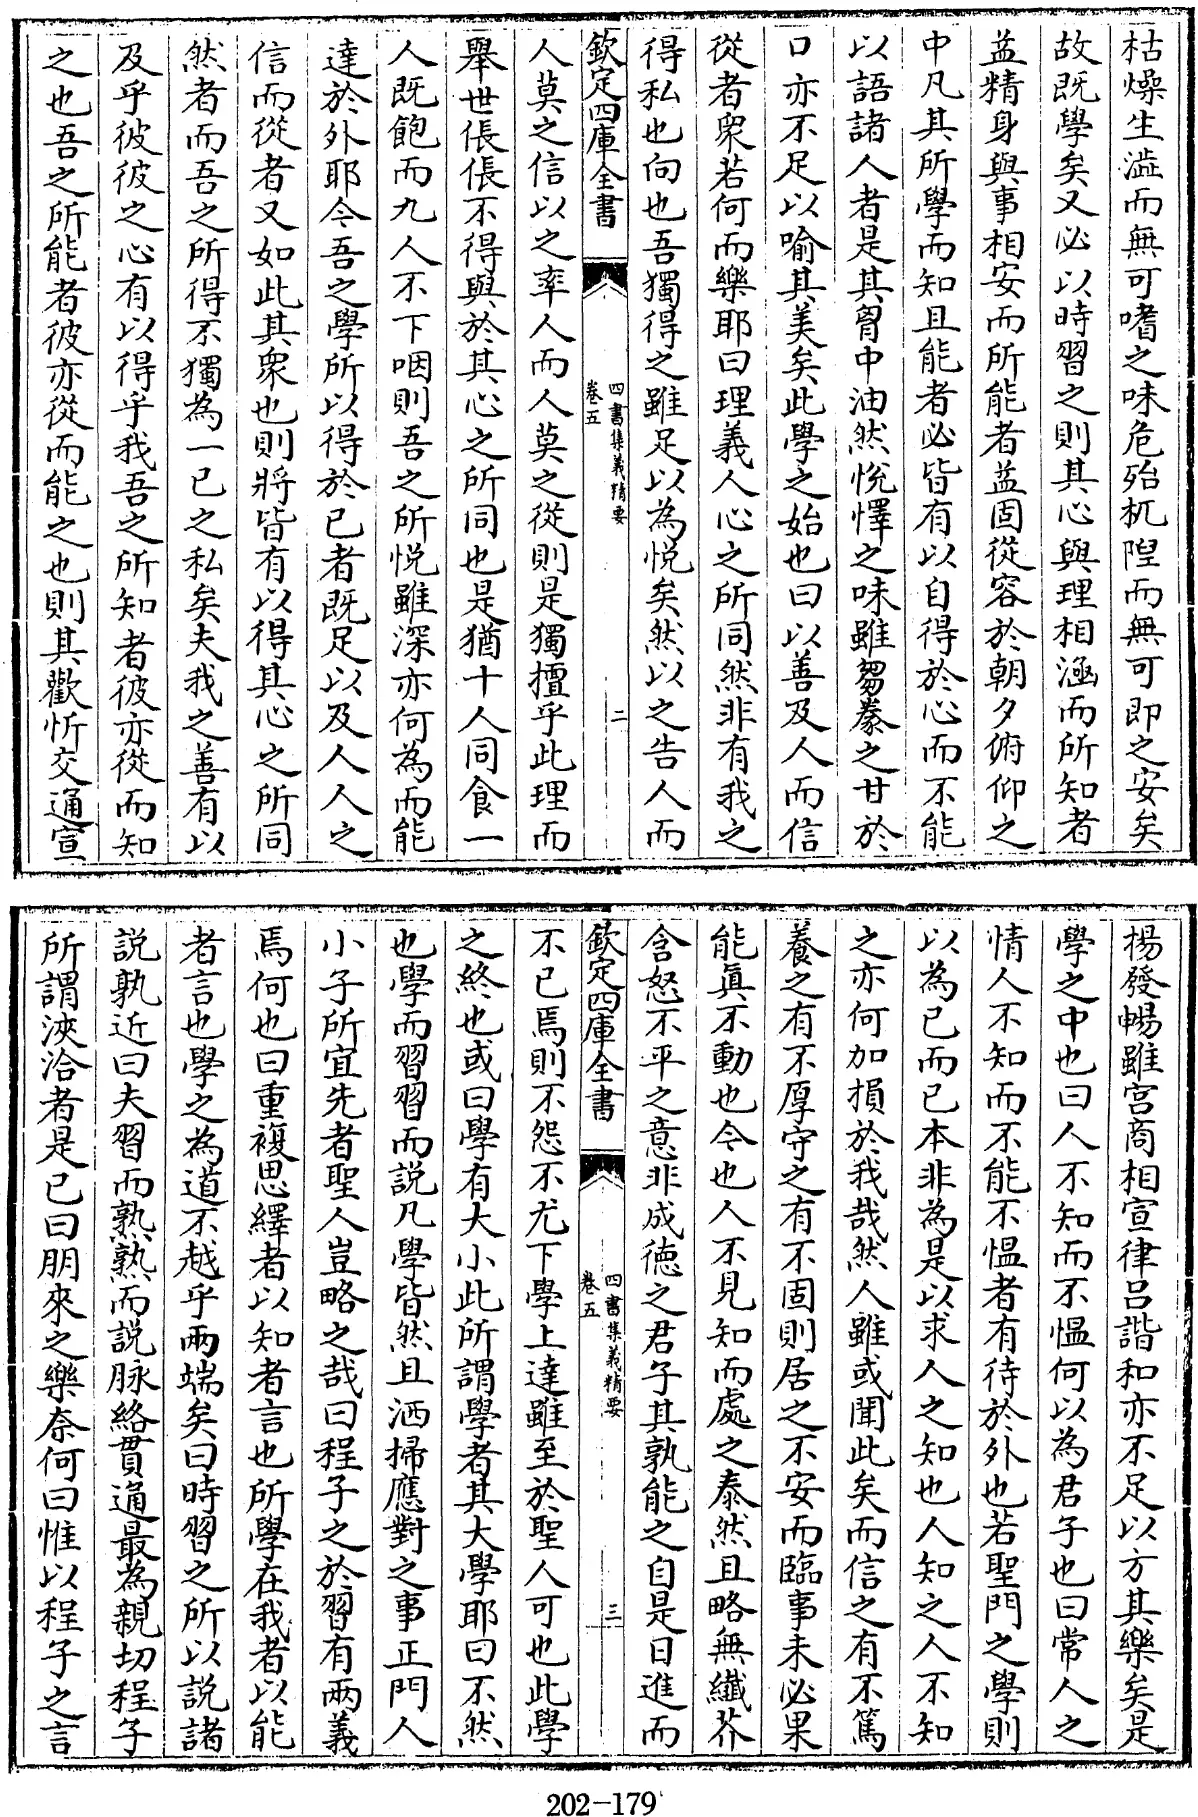 枯燥生澁而無可嗜之味危殆杌隉而無可即之安矣
故既學矣又必以時習之則其心與理相涵而所知者
益精身與事相安而所能者益固從容於朝夕俯仰之
中凡其所學而知且能者必皆有以自得於心而不能
以語諸人者是其胷中油然悅懌之味雖芻豢之甘於
口亦不足以喻其美矣此學之始也曰以善及人而信
從者衆若何而樂耶曰理義人心之所同然非有我之
得私也向也吾獨得之雖足以為悅矣然以之告人而
欽定四庫全書
四書集義精要
卷五
二
人莫之信以之率人而人莫之從則是獨擅乎此理而
舉世倀倀不得與於其心之所同也是猶十人同食一
人既飽而九人不下咽則吾之所悅雖深亦何為而能
達於外耶今吾之學所以得於已者既足以及人人之
信而從者又如此其衆也則將皆有以得其心之所同
然者而吾之所得不獨為一已之私矣夫我之善有以
及乎彼彼之心有以得乎我吾之所知者彼亦從而知
之也吾之所能者彼亦從而能之也則其歡忻交通宣
揚發暢雖宫商相宣律吕諧和亦不足以方其樂矣是
學之中也曰人不知而不慍何以為君子也曰常人之
情人不知而不能不愠者有待於外也若聖門之學則
以為已而已本非為是以求人之知也人知之人不知
之亦何加損於我哉然人雖或聞此矣而信之有不篤
養之有不厚守之有不固則居之不安而臨事未必果
能眞不動也今也人不見知而處之泰然且略無纖芥
含怒不平之意非成徳之君子其孰能之自是日進而
欽定四庫全書
四書集義精要
卷五
三
不已焉則不怨不尤下學上達雖至於聖人可也此學
之終也或曰學有大小此所謂學者其大學耶曰不然
也學而習習而説凡學皆然且洒掃應對之事正門人
小子所宜先者聖人豈略之哉曰程子之於習有兩義
焉何也曰重複思繹者以知者言也所學在我者以能
者言也學之為道不越乎兩端矣曰時習之所以説諸
説孰近曰夫習而熟熟而説脉絡貫通最為親切程子
所謂浹洽者是已曰朋來之樂奈何曰惟以程子之言
202-179